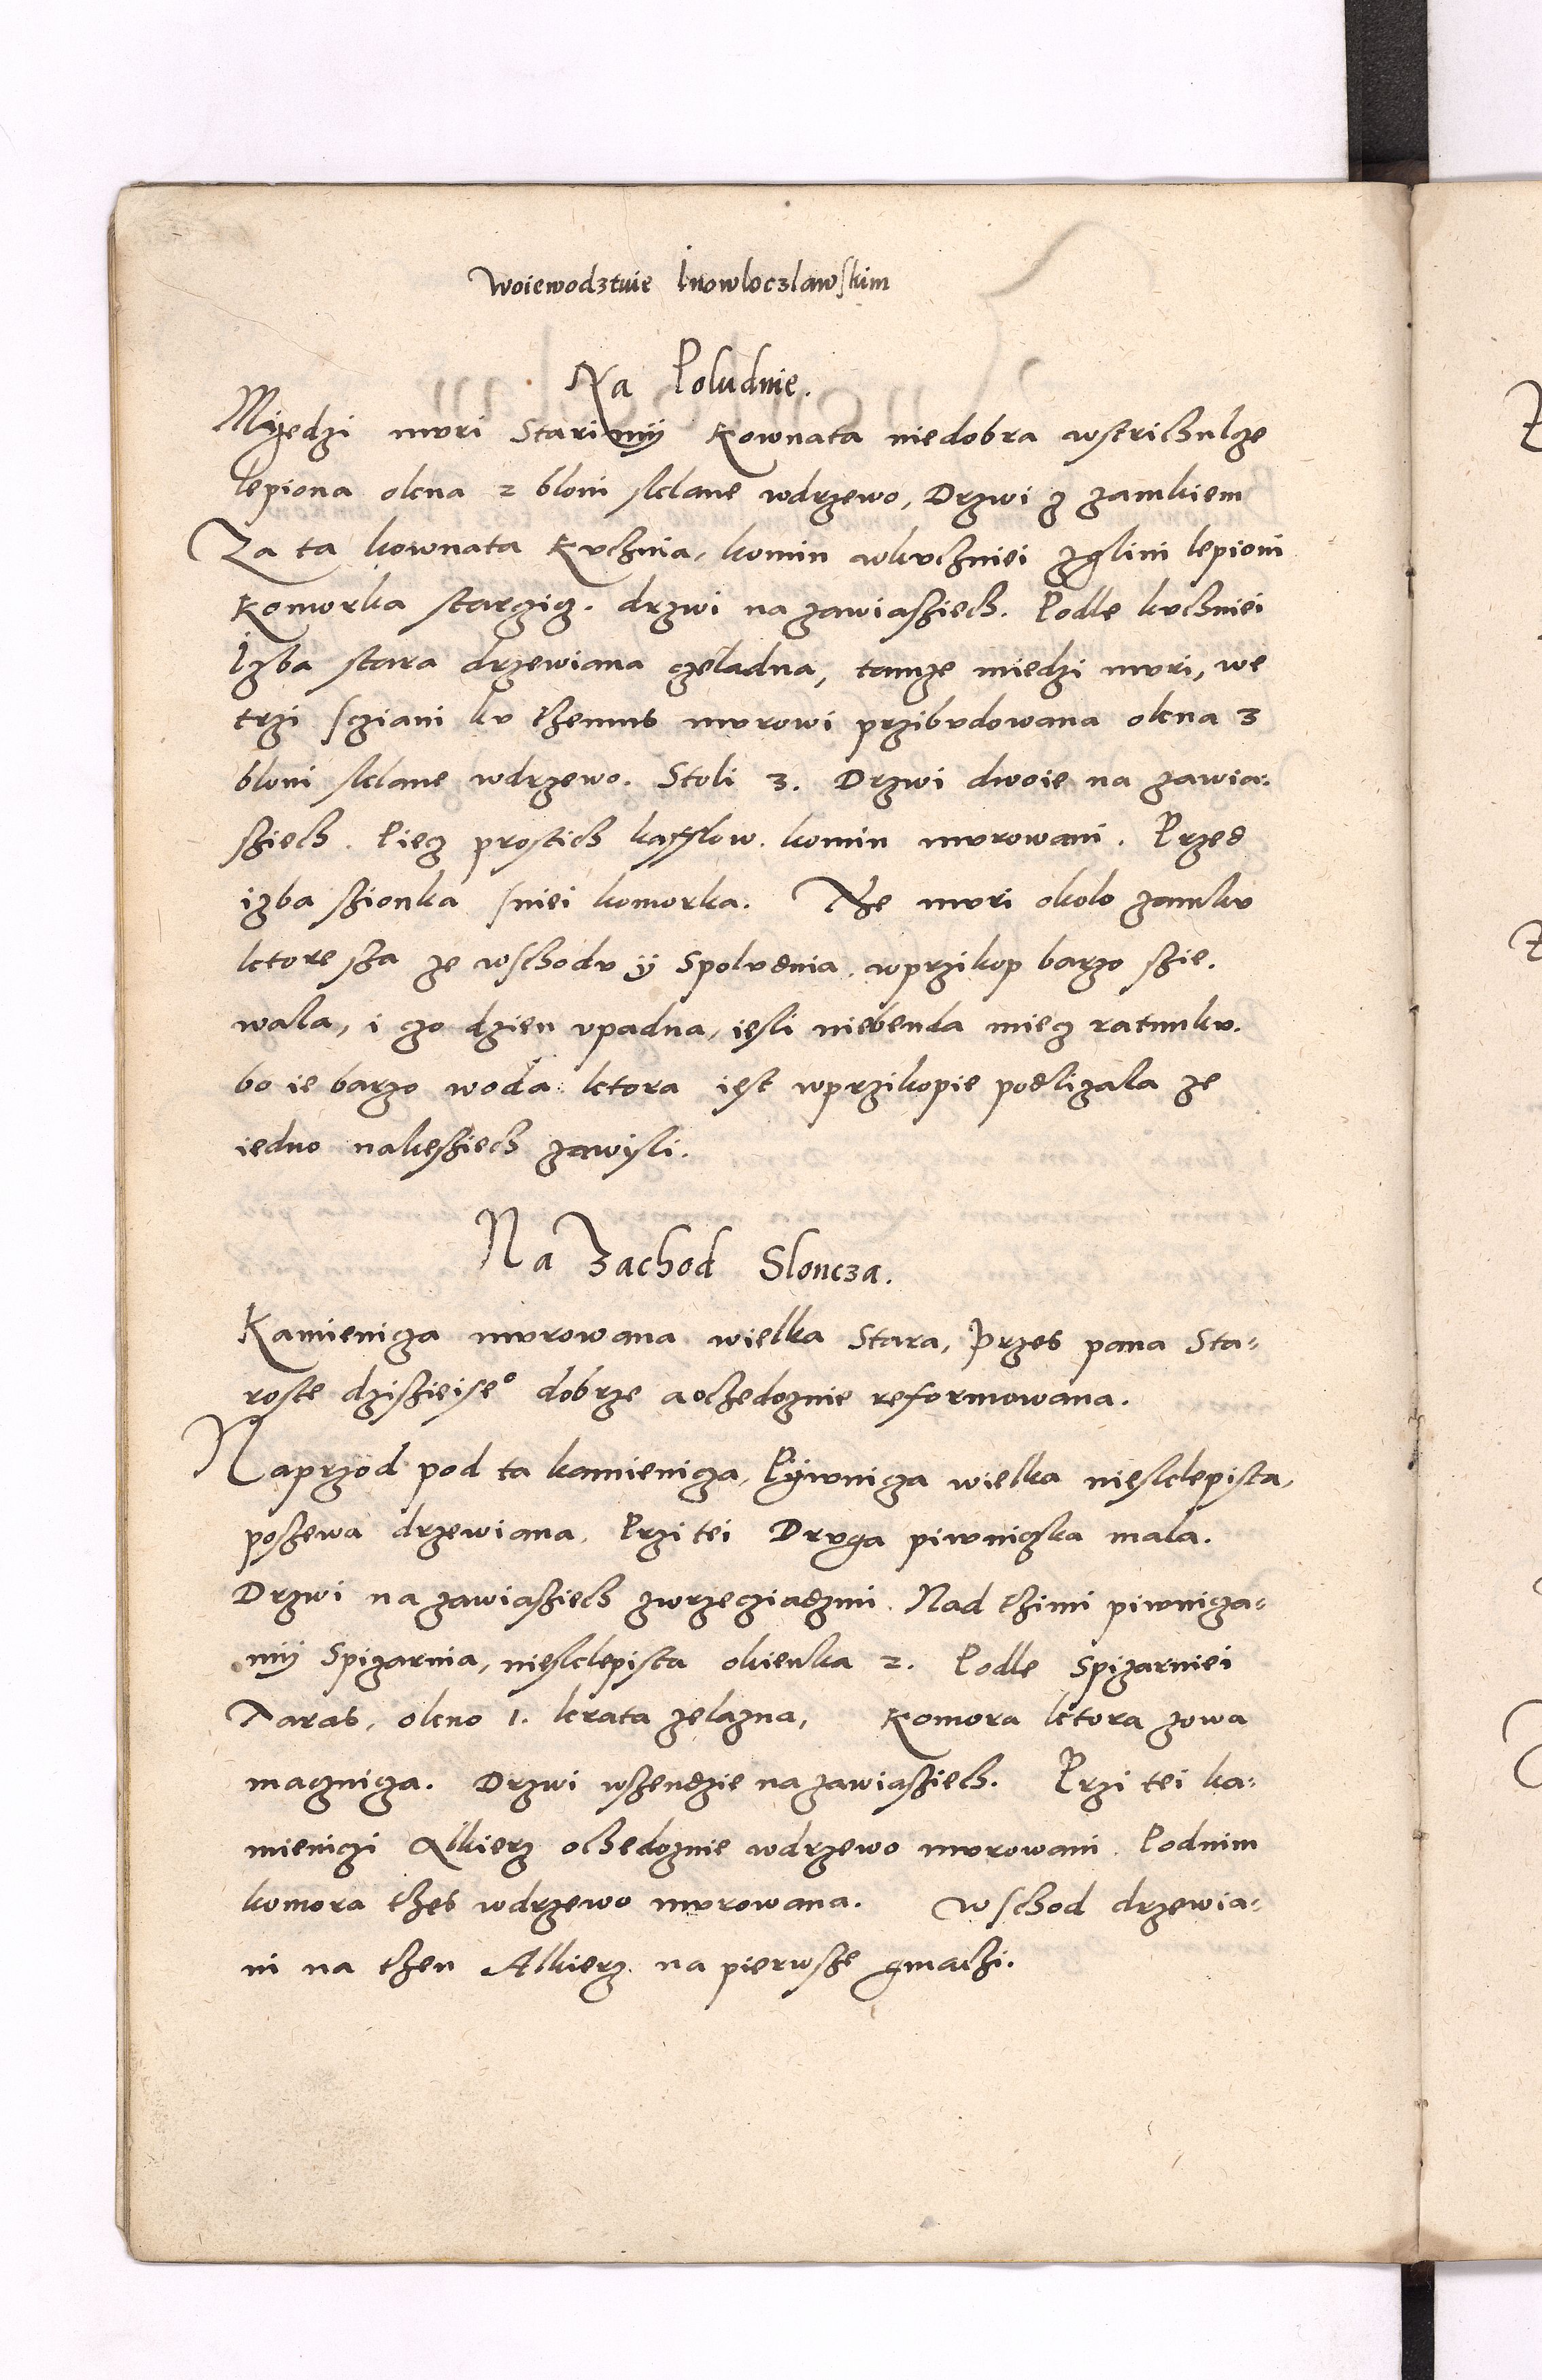 Woiewodztwie Inowloczlawskim
Na Poludnie.
Myedzi mvri Starimÿ Kownata niedobra wstrichulze
lepiona okna 2 bloni sklane wdrzewo, Drzwi z zamkiem
Za ta kownata Kvchnia, komin wkvchniei zglini lepioni
Komorka starziz. drzwi na zawiasziech. Podle kvchniei
Izba stara drzewiana czeladna, tamze miedzi mvri, we
trzi scziani kv themus mvrowi przibvdowana okna 3
bloni sklane wdrzewo. Stoli 3. Drzwi dwoie na zawia:
sziech. Piecz prostich kafflow. komin mvrowani. Przed
izba szionka sniei komorka. The mvri okolo zamkv
ktore sza ze wschodv ÿ Spolvdnia, wprzikop barzo szie.
wala, i czo dzien vpadna, iesli niebenda miecz ratunkv.
bo ie barzo woda ktora iest wprzikopie podlizala ze
iedno nakesziech zawisli.
Na Zachod Sloncza.
Kamienicza mvrowana wielka Stara, przes pana Sta:
roste dzisieise° dobrze aochedoznie reformowana.
Naprzod pod ta kamienicza, Pÿwnicza wielka niesklepista,
poszewa drzewiana, Przi tei Drvga piwniczka mala.
Drzwi na zawiasziech zwrzecziadzmi. Nad thimi piwnicza:
mÿ Spizarnia, niesklepista okienka 2. Podle Spizarniei
Taras, okno 1. krata zelazna, Komora ktora zowa
macznicza. Drzwi wszendzie na zawiasziech. Przi tei ka:
mieniczi Alkierz ochedoznie wdrzewo mvrowani. Podnim
komora thes wdrzewo mvrowana. Wschod drzewia:
ni na then Alkierz na pierwsze gmachi.